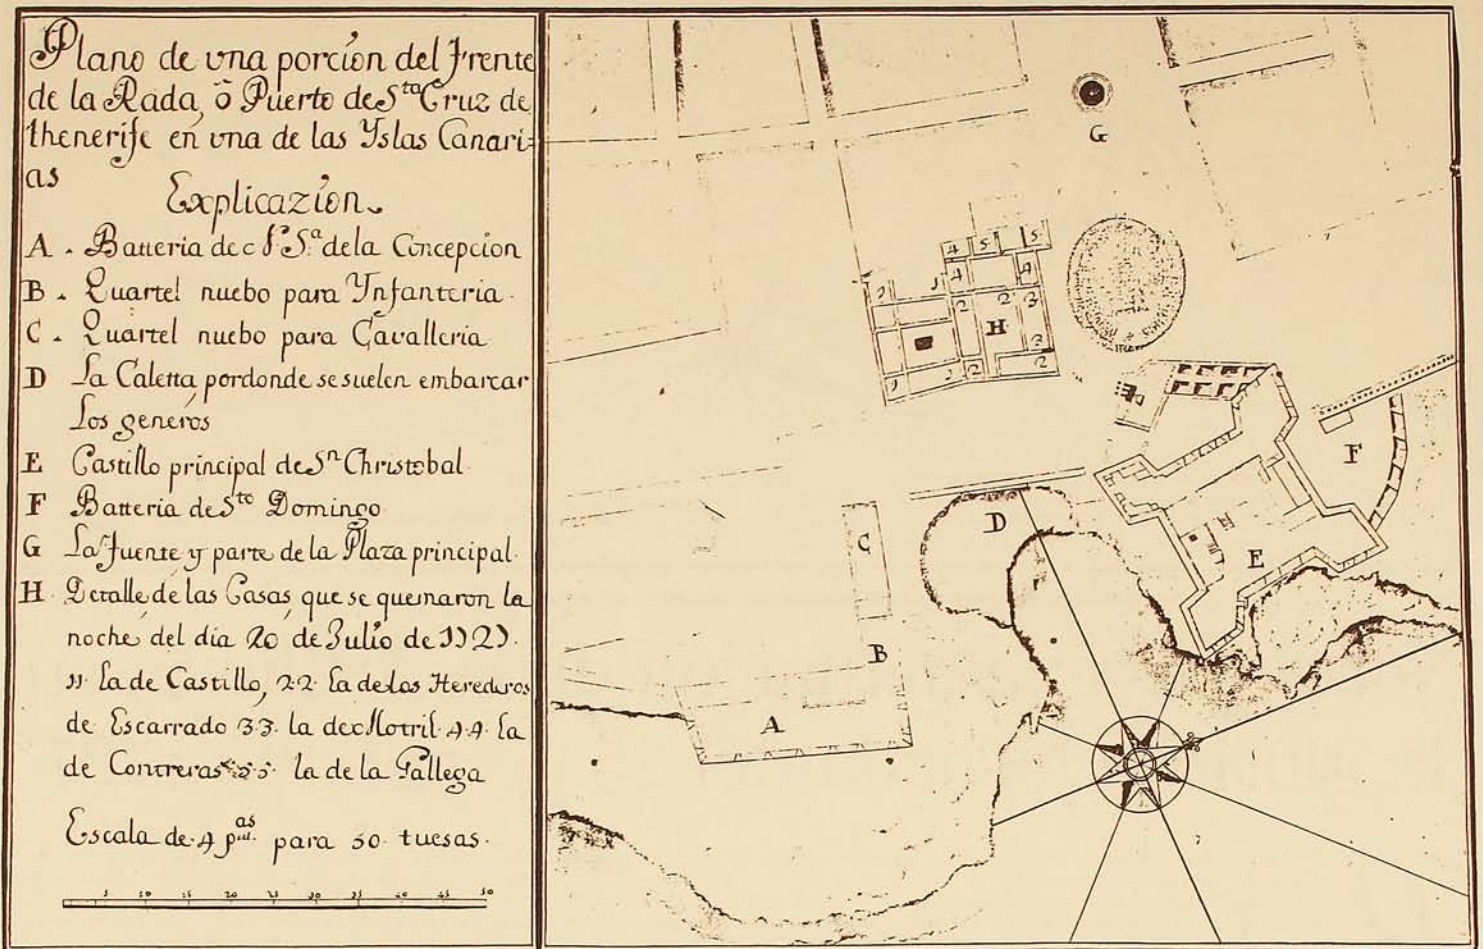 Plano de vna porcion del frente
de la Rada, ò Puerto de Sta Cruz de
thenerife en vna de las Yslas Canari=
as
Explicazion
A. Batteria de N. Sa. de la Concepcion
B. Quartel nuebo para Ynfanteria.
C. Quartel nuebo para Cavalleria
D La Caletta pordonde se suelen embarcar
Los generos
E Castillo principal de Sn Christobal
F Batteria de Sto Domingo
G La fuente y parte de la Plaza principal.
H Detalle de las Casas, que se quemaron la
noche del dia 20 de Julio de 1727.
11. La de Castillo, 2.2. La de los Herederos
de Escarrado 3.3. la de Motril. 4.4. La
de Contreras 5.5. la de la Gallega
Escala de 4 pas. para 50 tuesas.
5 10 15 20 25 30 35 40 45 50
G
4 5 5
4 4
1 1 2 2 3
H
3
1 1 2 2
F
D
C
E
B
A